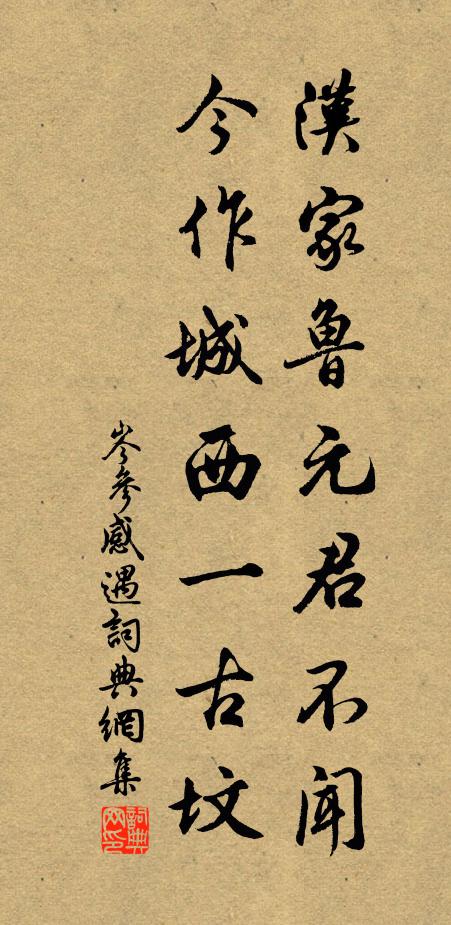 漢家魯元君不闻
今作城西一古坟
岑參感遇詞典網集
詞典网印